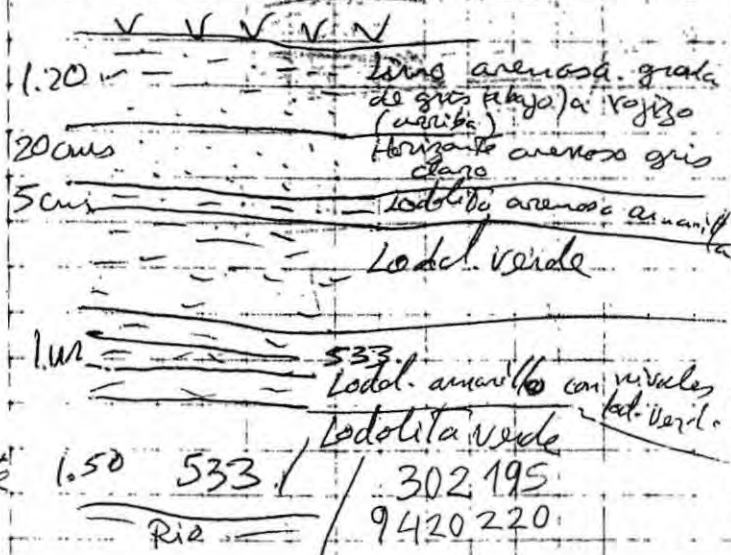 V V V V V
1.20 Limo arenosa. grada
de gris (abajo) a rojizo
(arriba)
20 cms Horizonte arenoso gris
claro
5 cms Lodolita arenosa amarilla
Lodol. verde
1.m 533.
Lodol. amarillo con niveles
lod. verd.
Lodolita verde
1.50 533. / 302 195
Rio 9420 220